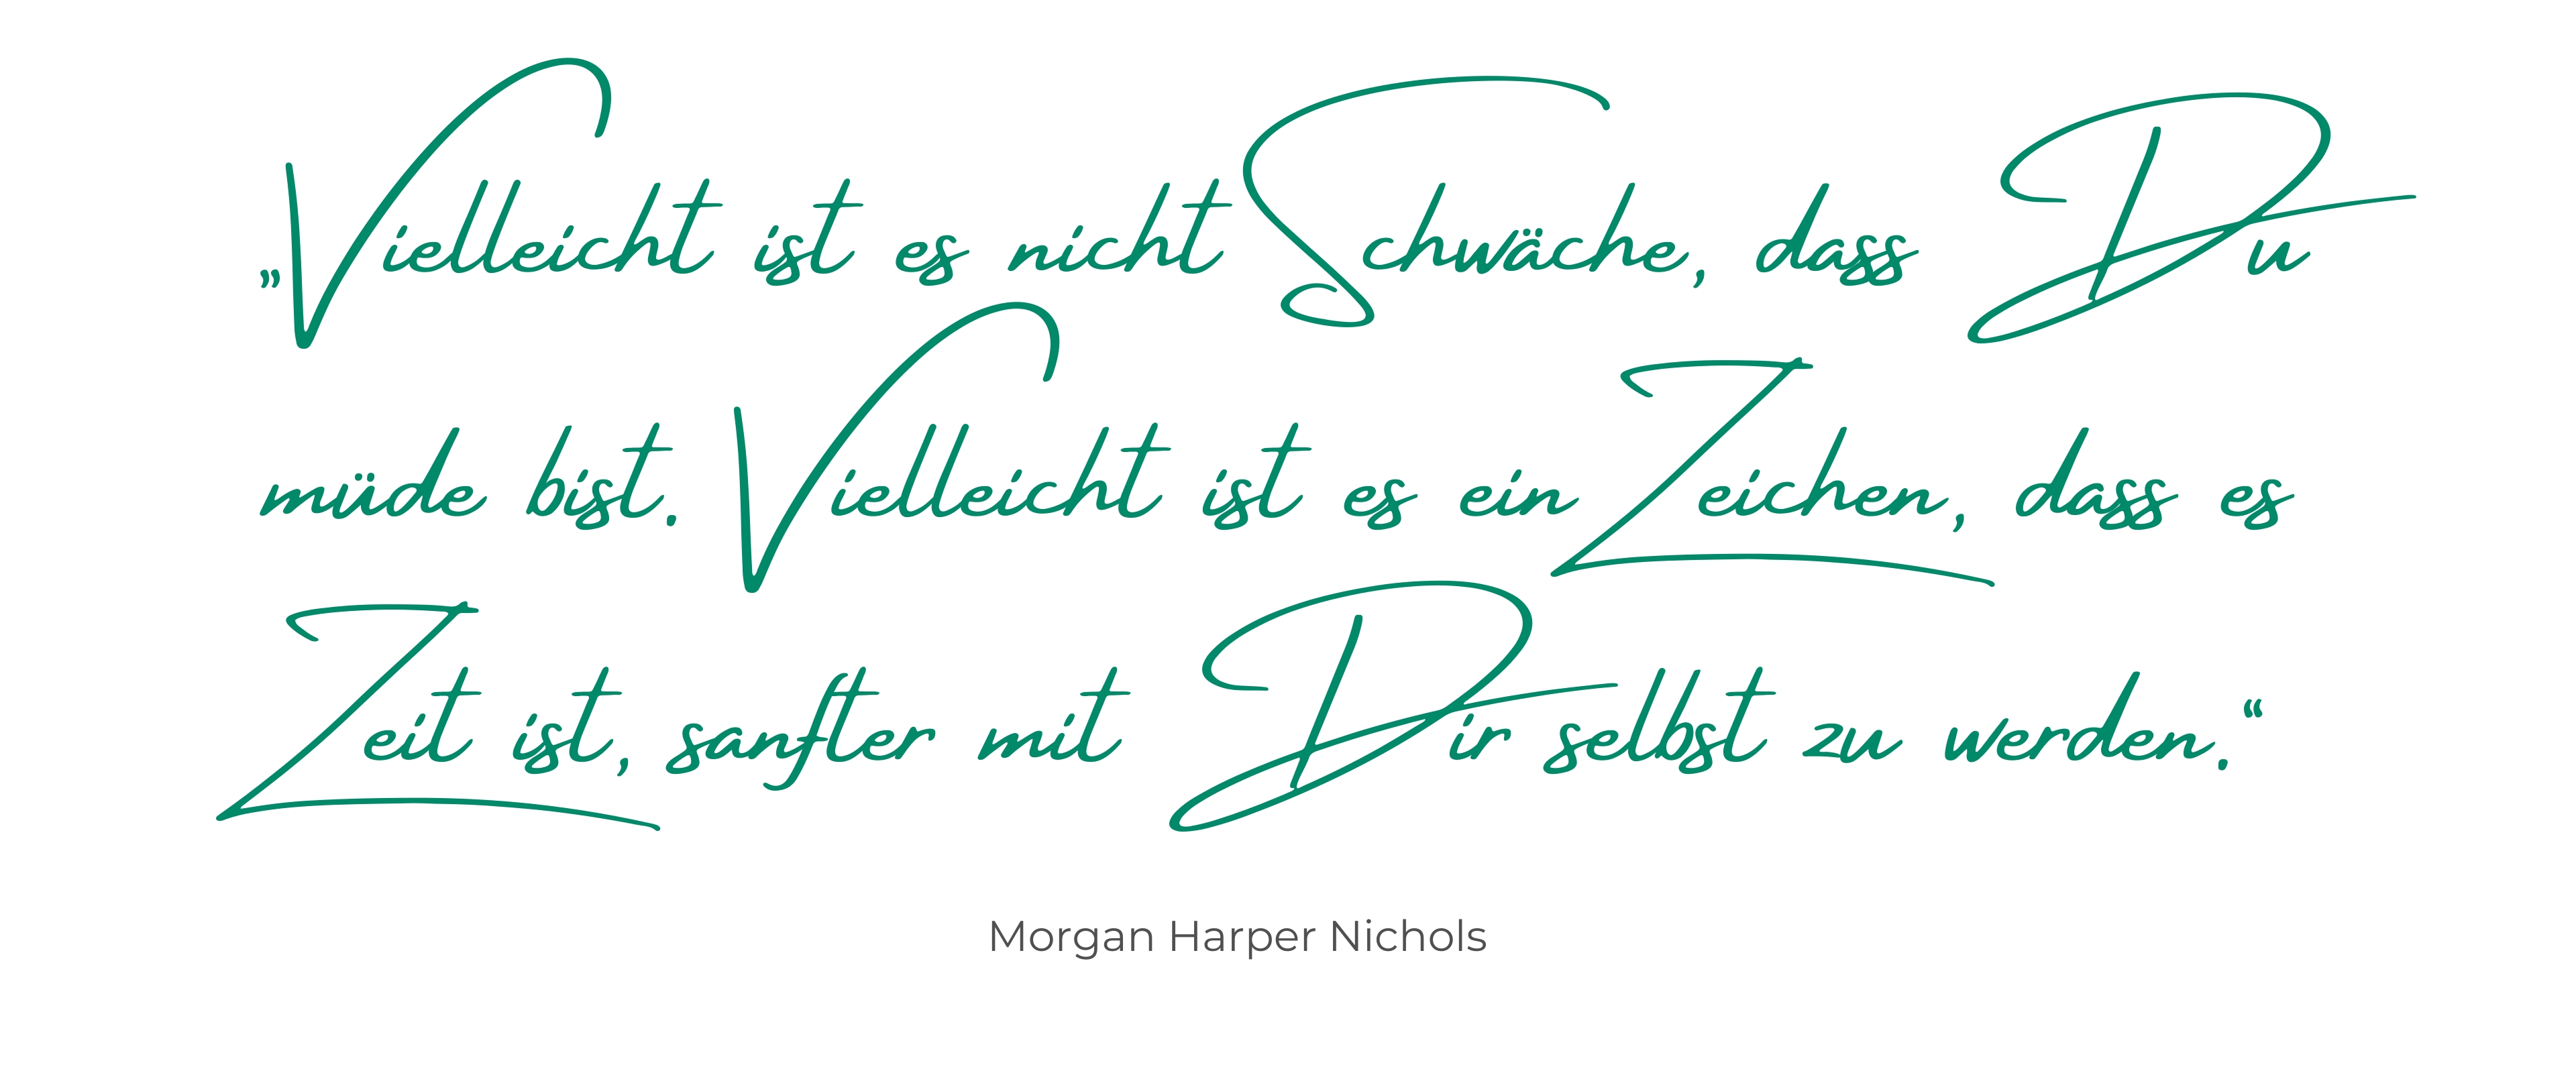 „Vielleicht ist es nicht Schwäche, dass Du
müde bist. Vielleicht ist es ein Zeichen, dass es
Zeit ist, sanfter mit Dir selbst zu werden.“
Morgan Harper Nichols